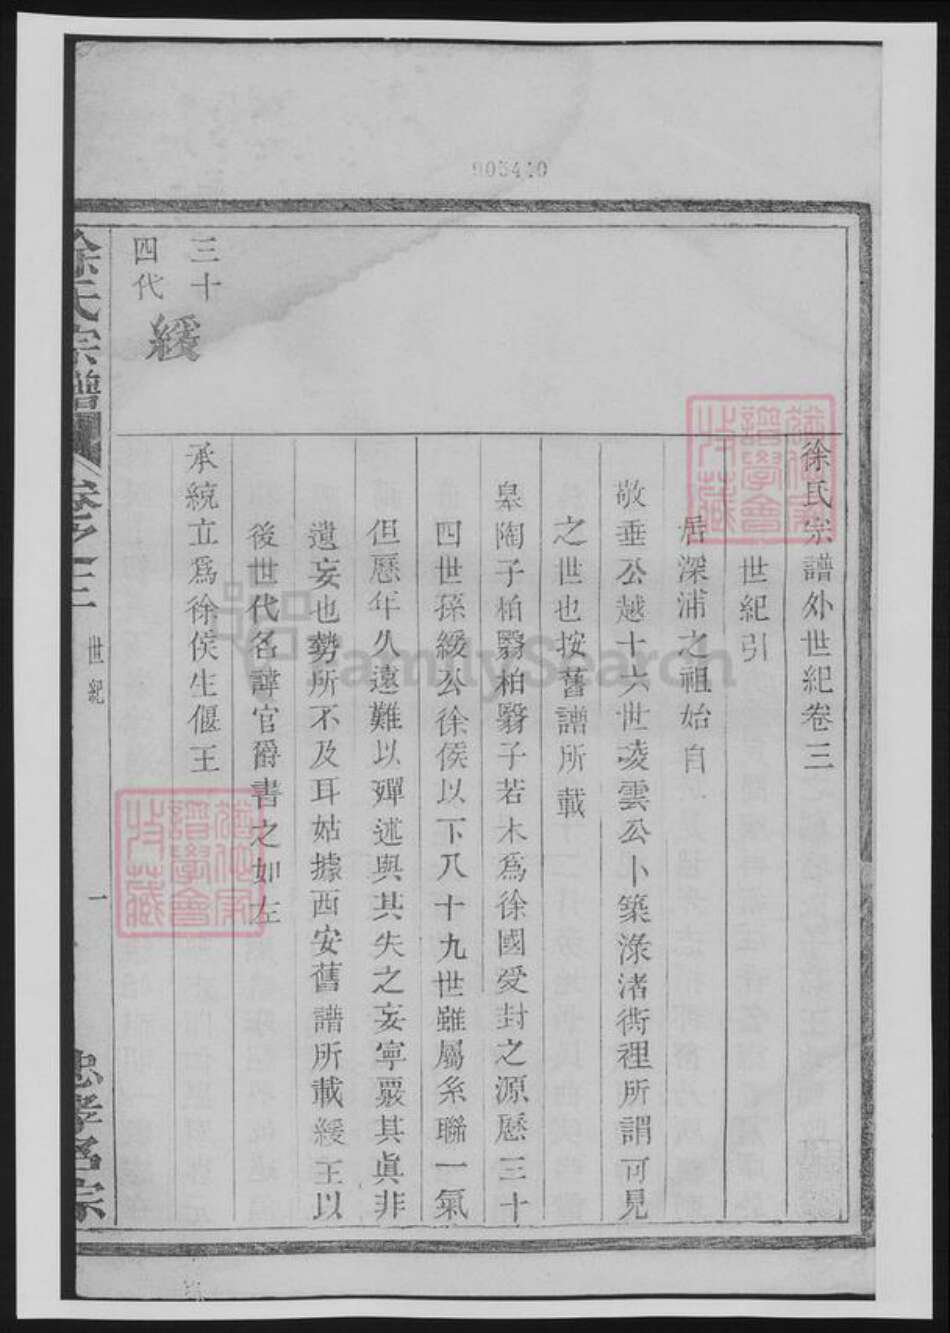 005440
徐氏宗譜外世紀卷三
世紀引
居深浦之祖始自
敬垂公越十六世凌雲公卜築淥渚衖裡所謂可見
之世也按舊譜所載
皋陶子柏翳柏翳子若木為徐國受封之源歷三十
四世孫緩公徐侯以下八十九世雖屬糸聯一氣
但歷年久遠難以殫述與其失之妄寧覈其眞非
遺妄也勢所不及耳姑據西安舊譜所載緩王以
後世代名諱官爵書之如左
三十
四代
緩
承統立為徐侯生偃王
徐氏宗譜
卷之三
世紀
一
忠孝名宗
譜學會
收藏
FamilySearch
譜學會
收藏